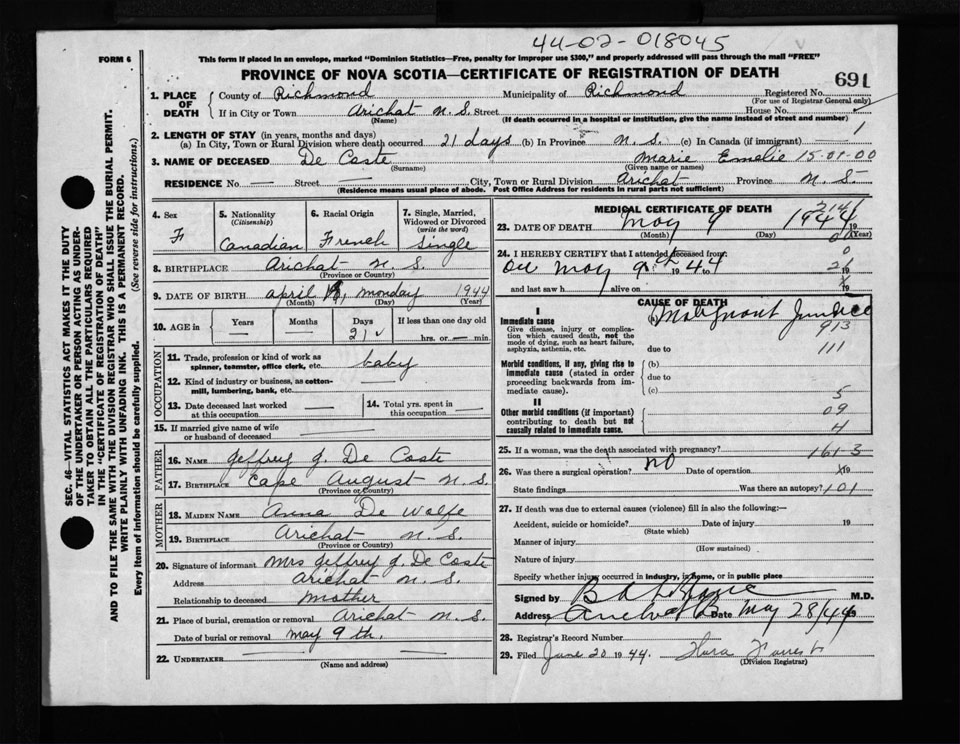 44-02-018045
FORM 6
This form if placed in an envelope, marked "Dominion Statistics—Free, penalty for improper use $300," and properly addressed will pass through the mail "FREE"
PROVINCE OF NOVA SCOTIA—CERTIFICATE OF REGISTRATION OF DEATH
691
1. PLACE OF DEATH
County of Richmond Municipality of Richmond Registered No.
(For use of Registrar General only)
If in City or Town Arichat N.S. Street House No.
(Name) (If death occurred in a hospital or institution, give the name instead of street and number)
2. LENGTH OF STAY (in years, months and days)
(a) In City, Town or Rural Division where death occurred 21 days (b) In Province N.S. (c) In Canada (if immigrant) 1
3. NAME OF DECEASED De Coste Marie Emelie 15-01-00
(Surname) (Given name or names)
RESIDENCE No — Street — City, Town or Rural Division Arichat Province N.S.
(Residence means usual place of abode. Post Office Address for residents in rural parts not sufficient)
SEC. 46—VITAL STATISTICS ACT MAKES IT THE DUTY
OF THE UNDERTAKER OR PERSON ACTING AS UNDER-
TAKER TO OBTAIN ALL THE PARTICULARS REQUIRED
IN THE "CERTIFICATE OF REGISTRATION OF DEATH"
AND TO FILE THE SAME WITH THE DIVISION REGISTRAR WHO SHALL ISSUE THE BURIAL PERMIT.
WRITE PLAINLY WITH UNFADING INK. THIS IS A PERMANENT RECORD.
Every item of information should be carefully supplied. (See reverse side for instructions.)
4. Sex
F
5. Nationality
(Citizenship)
Canadian
6. Racial Origin
French
7. Single, Married, Widowed or Divorced
(write the word)
Single
8. BIRTHPLACE Arichat N.S.
(Province or Country)
9. DATE OF BIRTH April Monday 1944
(Month) (Day) (Year)
10. AGE in
Years —
Months —
Days 21
If less than one day old
hrs. or — min.
OCCUPATION
11. Trade, profession or kind of work as
spinner, teamster, office clerk, etc. baby
12. Kind of industry or business, as cotton-
mill, lumbering, bank, etc. —
13. Date deceased last worked
at this occupation —
14. Total yrs. spent in
this occupation —
15. If married give name of wife
or husband of deceased —
FATHER
16. NAME Geffrey J. De Coste
17. BIRTHPLACE Cape August N.S.
(Province or Country)
MOTHER
18. MAIDEN NAME Anna De Wolfe
19. BIRTHPLACE Arichat N.S.
(Province or Country)
20. Signature of informant Mrs Geffrey J. De Coste
Address Arichat N.S.
Relationship to deceased Mother
21. Place of burial, cremation or removal Arichat N.S.
Date of burial or removal May 9th.
22. UNDERTAKER —
(Name and address)
MEDICAL CERTIFICATE OF DEATH
2141
23. DATE OF DEATH May 9 1944 19
(Month) (Day) (Year)
0
24. I HEREBY CERTIFY that I attended deceased from: 0
on May 9th 1944 to 21 19
and last saw h alive on 19
CAUSE OF DEATH
I
Immediate cause
Give disease, injury or complica-
tion which caused death, not the
mode of dying, such as heart failure,
asphyxia, asthenia, etc.
(a) Malignant Jaundice
913
due to 111
Morbid conditions, if any, giving rise to
immediate cause (stated in order
proceeding backwards from im-
mediate cause).
(b)
due to
(c) 5
II
Other morbid conditions (if important)
contributing to death but not
causally related to immediate cause.
09
4
25. If a woman, was the death associated with pregnancy? 161-3
26. Was there a surgical operation? no Date of operation 19
State findings Was there an autopsy? 101
27. If death was due to external causes (violence) fill in also the following:—
Accident, suicide or homicide? Date of injury 19
(State which)
Manner of injury
(How sustained)
Nature of injury
Specify whether injury occurred in industry, in home, or in public place
Signed by M.D.
Address Date May 28/44
28. Registrar's Record Number
29. Filed June 20 1944. Flora Forrest
(Division Registrar)